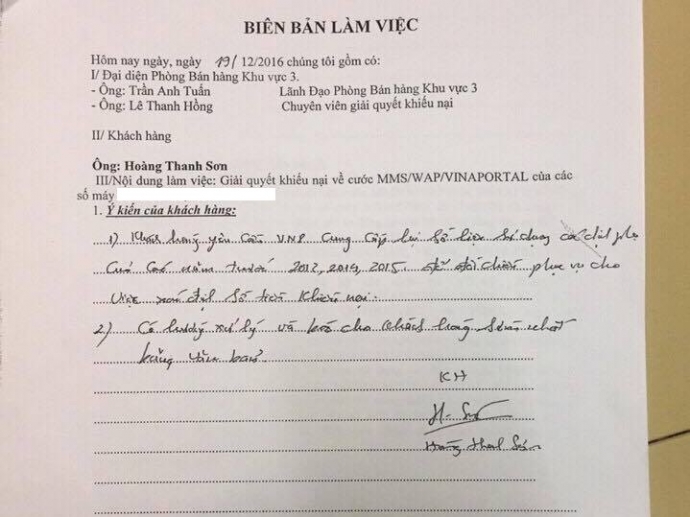 BIÊN BẢN LÀM VIỆC
Hôm nay ngày, ngày 19/ 12/2016 chúng tôi gồm có:
I/ Đại diện Phòng Bán hàng Khu vực 3.
- Ông: Trần Anh Tuấn Lãnh Đạo Phòng Bán hàng Khu vực 3
- Ông: Lê Thanh Hồng Chuyên viên giải quyết khiếu nại
II/ Khách hàng
Ông: Hoàng Thanh Sơn
III/Nội dung làm việc: Giải quyết khiếu nại về cước MMS/WAP/VINAPORTAL của các
số máy
1. Ý kiến của khách hàng:
1) Khách hàng yêu cầu VNP cung cấp lại số liệu sử dụng các dịch vụ
của các năm trước 2013, 2014, 2015 để đối chiếu phục vụ cho
việc xác định số tiền khiếu nại.
2) Có hướng xử lý và trả cho khách hàng sớm nhất
bằng văn bản.
KH
Hoàng Thanh Sơn